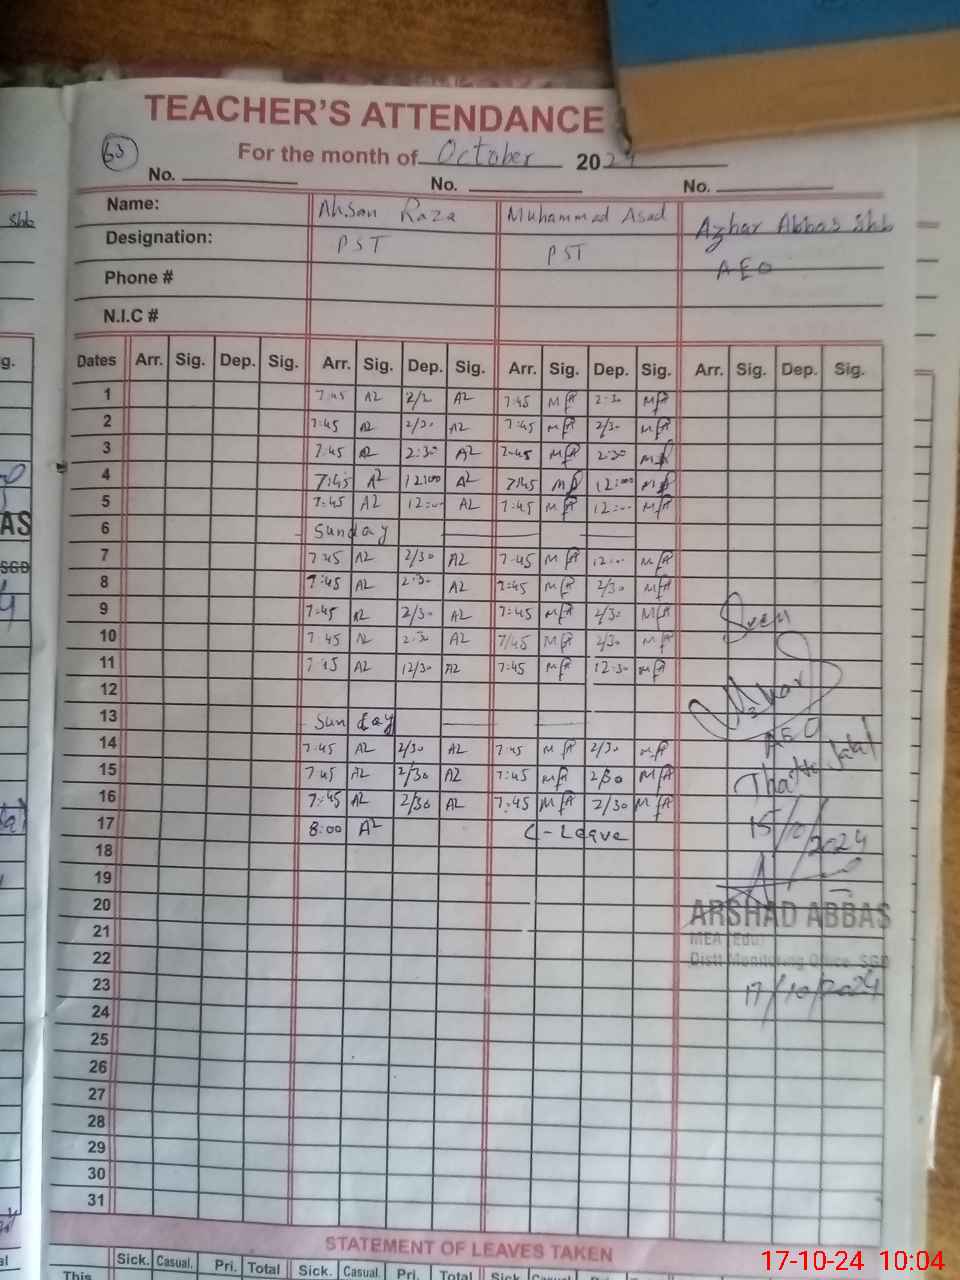 TEACHER'S ATTENDANCE
63
For the month of October 2024
No. No. No.
Name: Ahsan Raza Muhammad Asad Azhar Abbas Shb
Designation: PST PST AEO
Phone #
N.I.C #
Dates Arr. Sig. Dep. Sig. Arr. Sig. Dep. Sig. Arr. Sig. Dep. Sig. Arr. Sig. Dep. Sig.
1 7:45 AZ 2/2 AZ 7:45 MA 2:30 MA
2 7:45 AZ 2/30 AZ 7:45 MA 2/30 MA
3 7:45 AZ 2:30 AZ 7:45 MA 2:30 MA
4 7:45 AZ 12:00 AZ 7:45 MA 12:00 MA
5 7:45 AZ 12:00 AZ 7:45 MA 12:00 MA
6 Sunday
7 7:45 AZ 2/30 AZ 7:45 MA 12:00 MA
8 7:45 AZ 2:30 AZ 7:45 MA 2/30 MA
9 7:45 AZ 2/30 AZ 7:45 MA 2/30 MA
10 7:45 AZ 2:30 AZ 7/45 MA 2/30 MA
11 7:45 AZ 12/30 AZ 7:45 MA 12:30 MA
12
13 Sunday
14 7:45 AZ 2/30 AZ 7:45 MA 2/30 MA
15 7:45 AZ 2/30 AZ 7:45 MA 2/30 MA
16 7:45 AZ 2/30 AZ 7:45 MA 2/30 MA
17 8:00 AZ C-Leave
18
19
20
21
22
23
24
25
26
27
28
29
30
31
Seen
Azhar
AEO
15/10/2024
ARSHAD ABBAS
MEA (Edu)
Distt Monitoring Office SGD
17/10/2024
STATEMENT OF LEAVES TAKEN
This Sick. Casual. Pri. Total Sick. Casual. Pri. Total Sick. Casual. Pri. Total
17-10-24 10:04